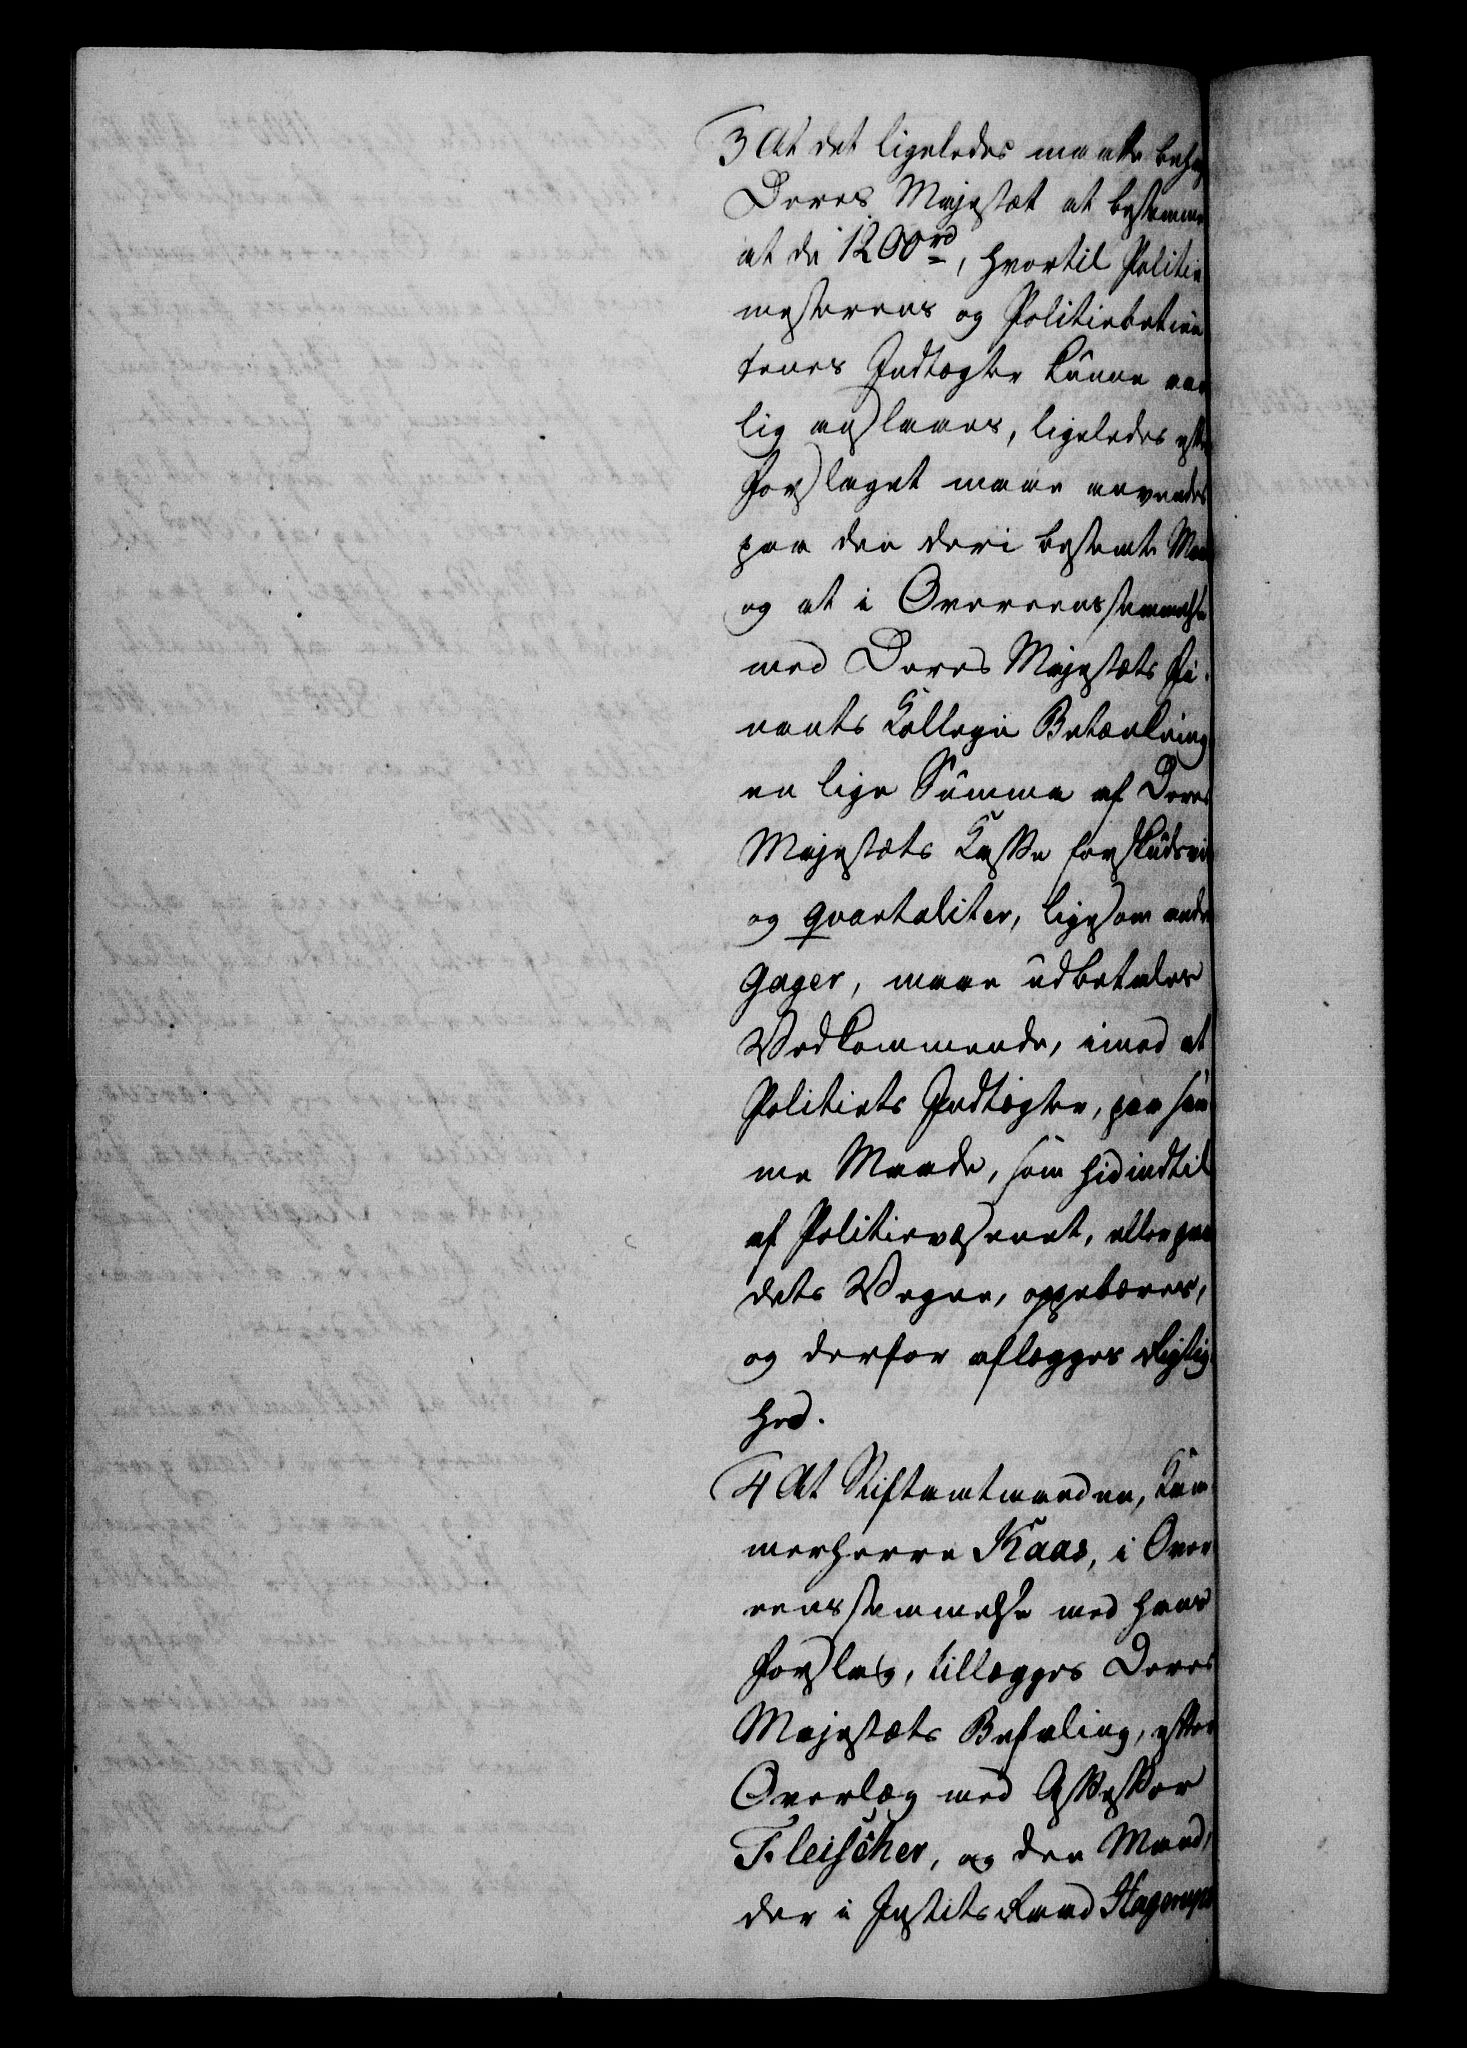 3 At det ligeledes maatte behag
Deres Majestæt at bestemme
at de 1200 rd, hvortil Politie
mesterens og Politiebetien
tenes Indtægter kunne aar
lig anslaaes, ligeledes efter
Forslaget maae anvendes
paa den deri bestemte Maa
og at i Overeensstemmelse
med Deres Majestæts Fi-
nants Collegii Betænkning
en lige Summa af Deres
Majestæts Kasse forskudsvi
og qvartaliter, ligesom andre
Gager, maae udbetales
Vedkommende, imod at
Politiets Indtægter, paa sam
me Maade, som hidindtil
af Politievæsenet, eller paa
dets Vegne, oppebæres,
og derfor aflægges Rigtig-
hed.
4 At Stiftamtmanden, Kam-
merherre Kaas, i Over-
eensstemmelse med hans
Forslag, tillægges Deres
Majestæts Befaling, efter
Overlæg med Assessor
Fleischer, og den Mand,
der i Justitsraad Hagerups